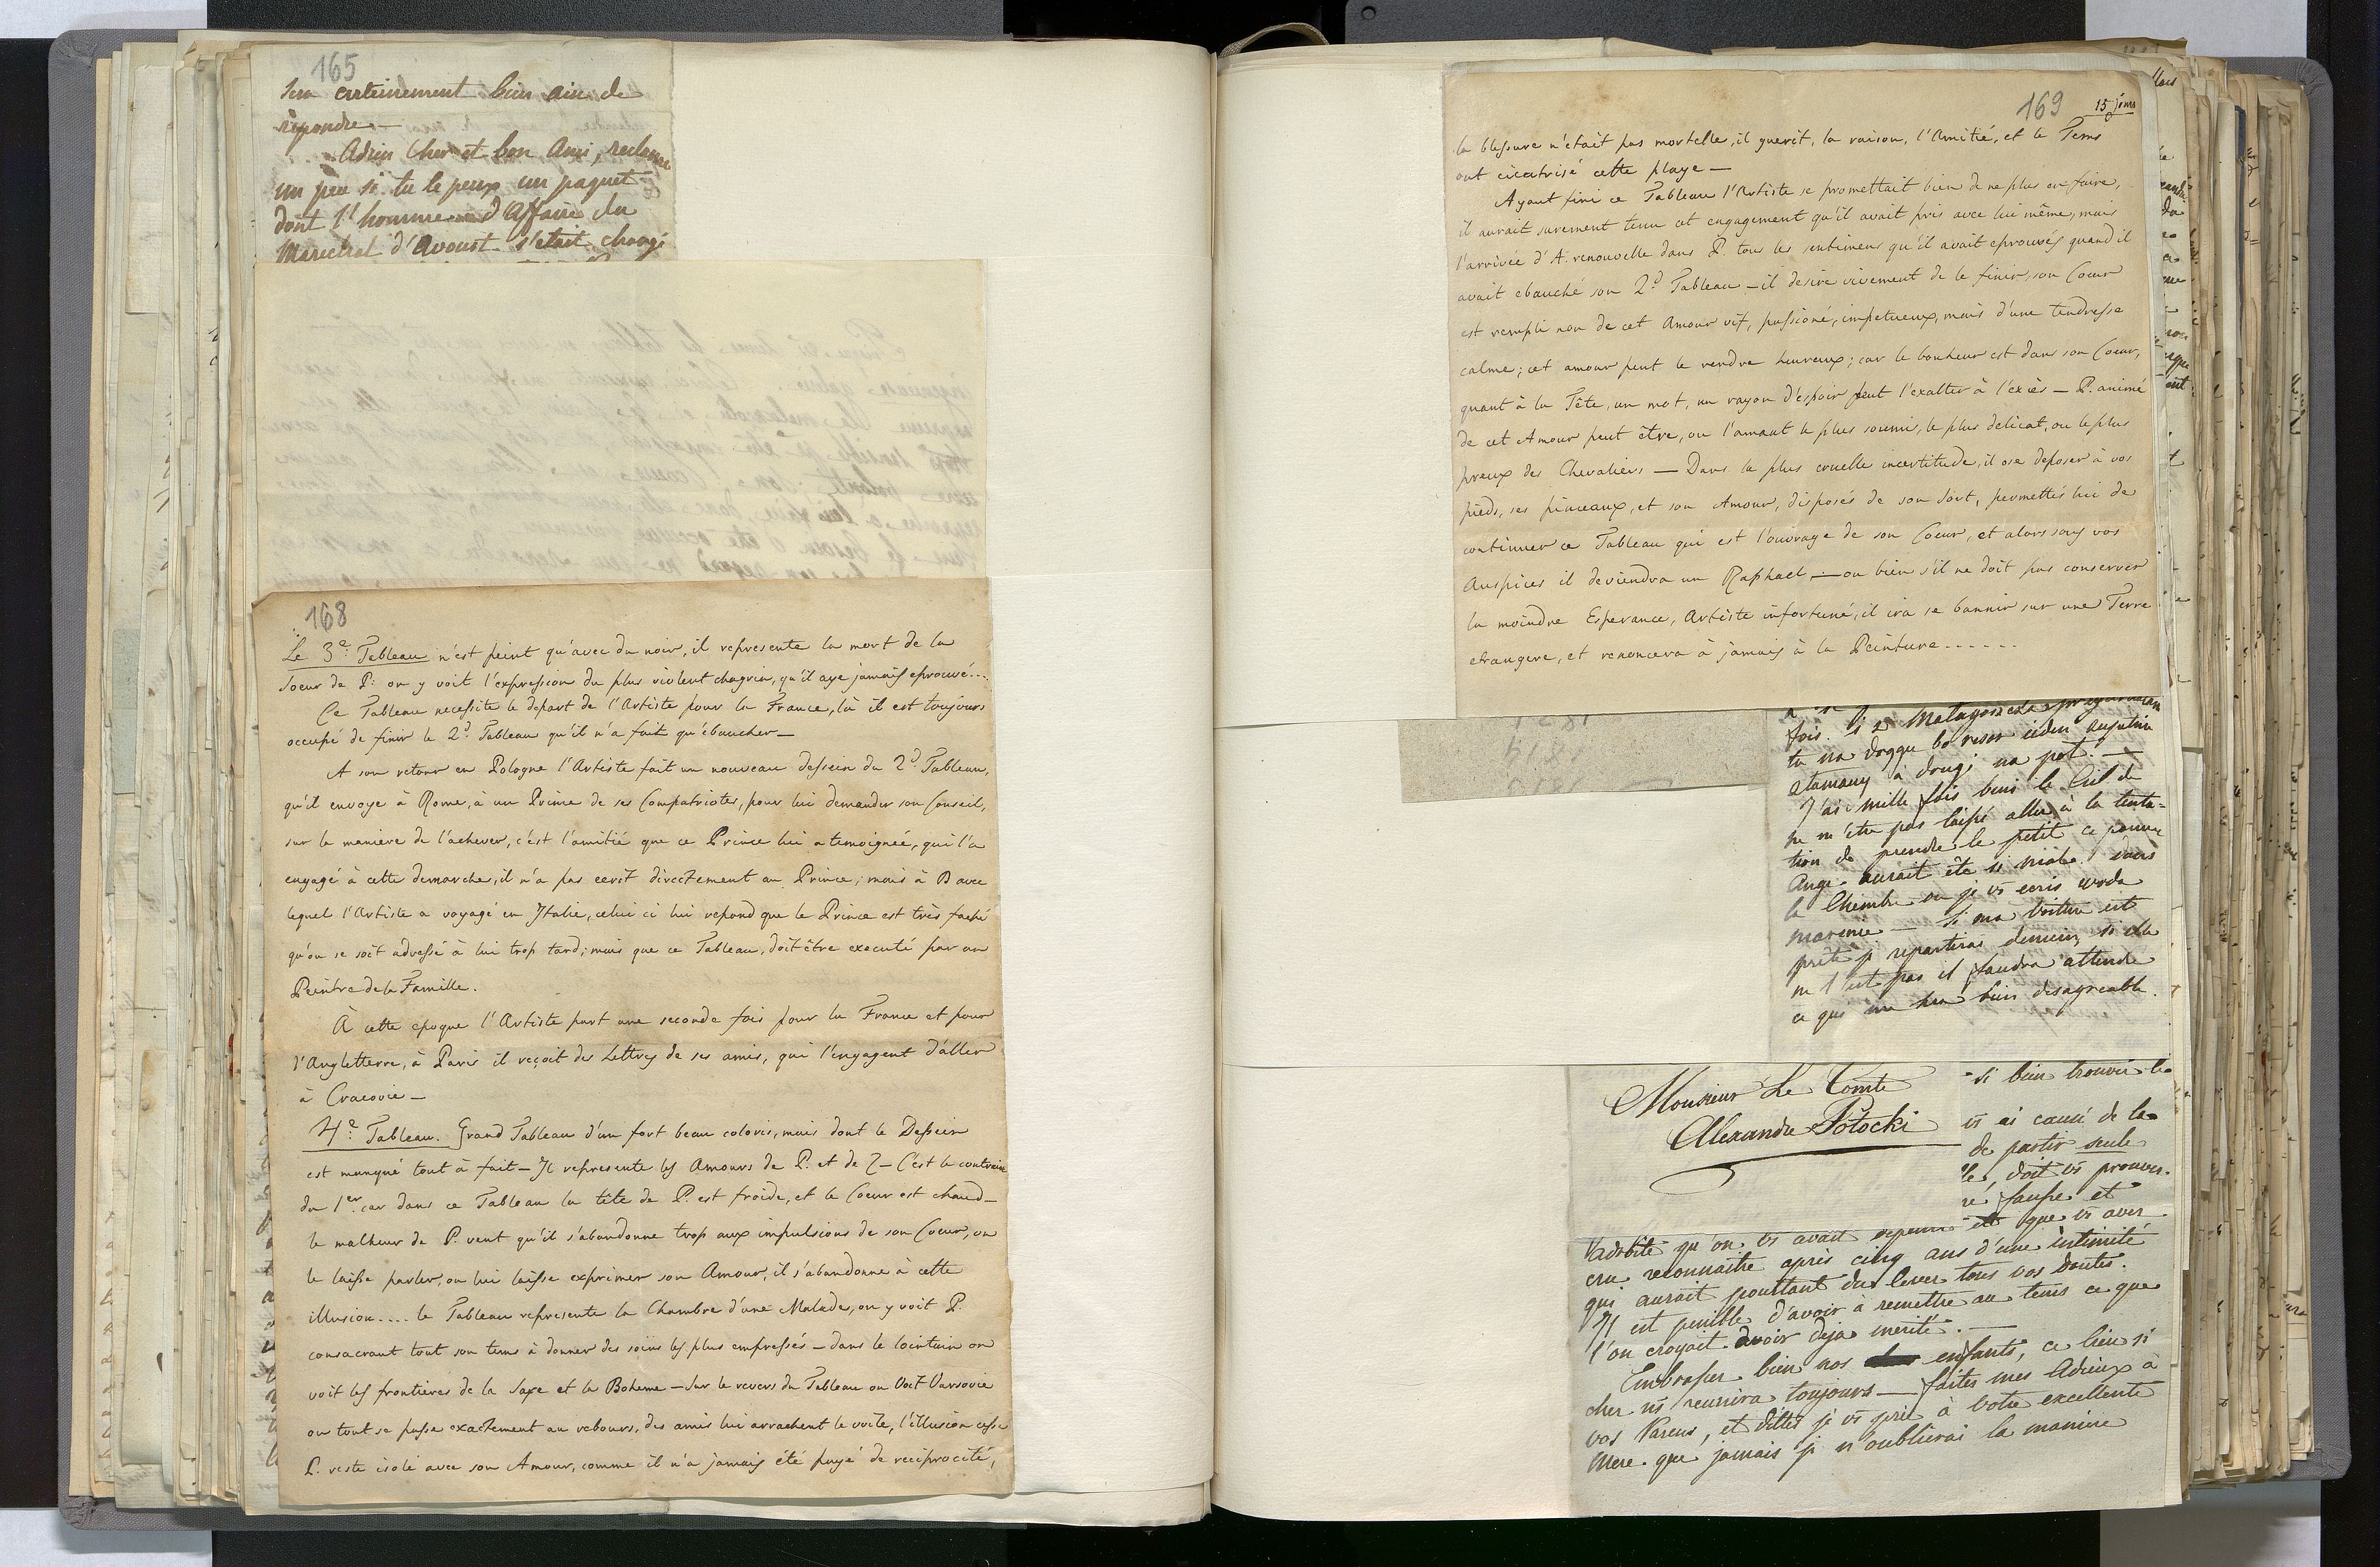 165
sera certainement bien aise de
répondre —
Adieu Cher et bon Ami, reclame
un peu si tu le peux un paquet
dont l'homme d'Affaire du
Marechal d'Avoust s'etait chargé
168
Le 3e. Tableau n'est peint qu'avec du noir, il represente la mort de la
soeur de P. on y voit l'expression du plus violent chagrin, qu'il aye jamais eprouvé....
Ce Tableau necessite le depart de l'Artiste pour la France, là il est toujours
occupé de finir le 2d. Tableau qu'il n'a fait qu'ébaucher —
A son retour en Pologne l'Artiste fait un nouveau dessein du 2d. Tableau,
qu'il envoye à Rome, à un Prince de ses Compatriotes, pour lui demander son Conseil,
sur la maniere de l'achever, c'est l'amitié que ce Prince lui a temoignée, qui l'a
engagé à cette demarche, il n'a pas ecrit directement au Prince; mais à B avec
lequel l'Artiste a voyagé en Italie, celui ci lui repond que le Prince est très faché
qu'on se soit adressé à lui trop tard; mais que ce Tableau, doit être executé par un
Peintre de la Famille.
À cette epoque l'Artiste part une seconde fois pour la France et pour
l'Angletterre, à Paris il reçoit des Lettres de ses amis, qui l'engagent d'aller
à Cracovie —
4e. Tableau. Grand Tableau d'un fort beau coloris, mais dont le Dessein
est manqué tout à fait — Il represente les Amours de P. et de Z — C'est le contraire
du 1er. car dans ce Tableau la tête de P. est froide, et le Coeur est chaud —
le malheur de P. veut qu'il s'abandonne trop aux impulsions de son Coeur, on
le laisse parler, on lui laisse exprimer son Amour, il s'abandonne à cette
illusion.... le Tableau represente la Chambre d'une Malade, on y voit P.
consacrant tout son tems à donner des soins les plus empressés — dans le lointain on
voit les frontieres de la Saxe et la Boheme — sur le revers du Tableau on Voit Varsovie
ou tout se passe exactement au rebours, des amis lui arrachent le voile, l'illusion cesse
P. reste isolé avec son Amour, comme il n'a jamais été payé de reciprocité,
169
15 jours
la blessure n'était pas mortelle, il guerit, la raison, l'Amitié, et le Tems
ont cicatrisé cette playe —
Ayant fini ce Tableau l'Artiste se promettait bien de ne plus en faire,
il aurait surement tenu cet engagement qu'il avait pris avec lui même, mais
l'arrivée d'A. renouvelle dans P. tous les sentimens qu'il avait eprouvés quand il
avait ebauché son 2d. Tableau — il desire vivement de le finir, son Coeur
est rempli non de cet Amour vif, passioné, impetueux, mais d'une tendresse
calme; cet amour peut le rendre heureux; car le bonheur est dans son Coeur,
quant à la Tête, un mot, un rayon d'espoir peut l'exalter à l'excès — P. animé
de cet Amour peut être, ou l'amant le plus soumis, le plus delicat, ou le plus
preux des Chevaliers — Dans la plus cruelle incertitude, il ose deposer à vos
pieds, ses pinceaux, et son Amour, disposés de son Sort, permettés lui de
continuer ce Tableau qui est l'ouvrage de son Coeur, et alors sous vos
Auspices il deviendra un Raphael — ou bien s'il ne doit pas conserver
la moindre Esperance, Artiste infortuné, il ira se bannir sur une Terre
etrangere, et renoncera à jamais à la Peinture......
fois.
J'ai mille fois beni le Ciel de
ne m'être pas laissé aller à la tenta-
tion de prendre le petit ce pauvre
Ange aurait été si mal
la Chambre ou je vs ecris
Si ma voiture est
prête je repartirai demain, si elle
ne l'est pas il faudra attendre
ce qui me sera bien desagreable.
Monsieur Le Comte
Alexandre Potocki
si bien trouver le
vs ai causé de la
de partir seule
doit vs prouver
fausse et
qu'on vs avait que vs avez
cru reconnaitre après cinq ans d'une intimité
qui aurait pourtant du lever tous vos doutes.
Il est penible d'avoir à remettre au tems ce que
l'on croyait avoir deja merité. —
Embrassez bien nos enfants, ce lien si
cher ns reunira toujours — faites mes Adieux à
vos Parens, et dittes je vs prie à votre excellente
Mere que jamais je n'oublierai la maniere